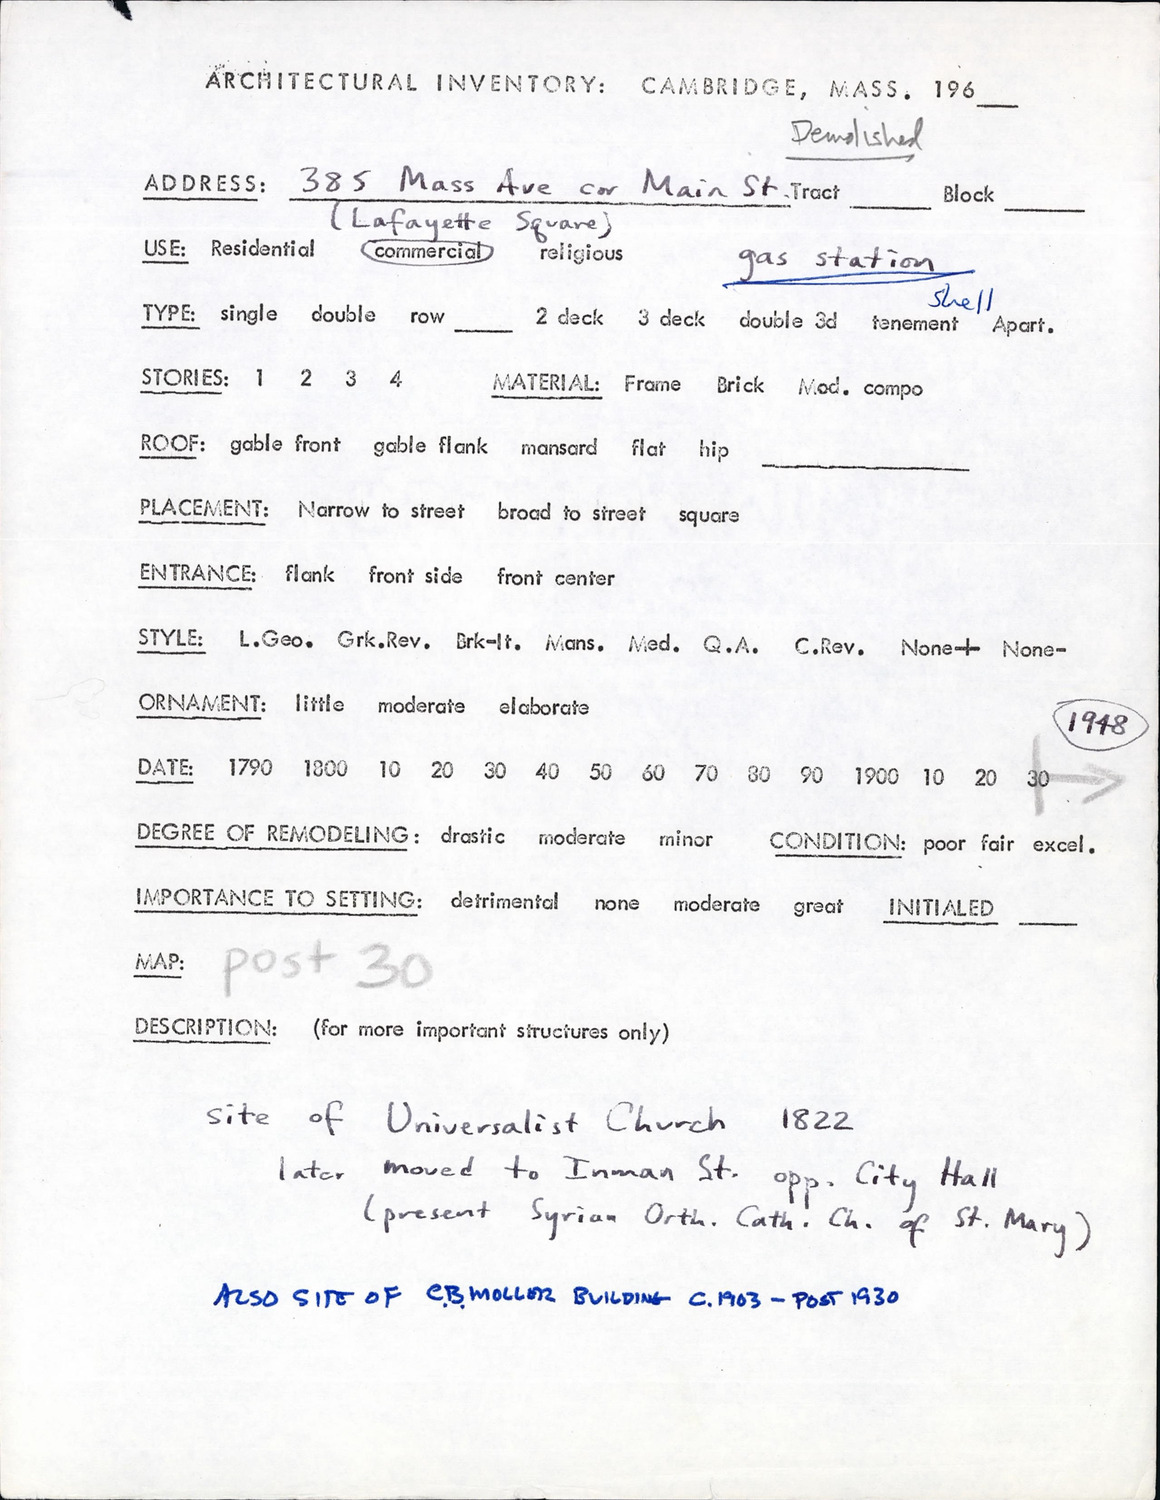 ARCHITECTURAL INVENTORY: CAMBRIDGE, MASS. 196__
Demolished
ADDRESS: 385 Mass Ave cor Main St. Tract ____ Block ____
(Lafayette Square)
USE: Residential commercial religious gas station
shell
TYPE: single double row ____ 2 deck 3 deck double 3d tenement Apart.
STORIES: 1 2 3 4 MATERIAL: Frame Brick Mod. compo
ROOF: gable front gable flank mansard flat hip ____
PLACEMENT: Narrow to street broad to street square
ENTRANCE: flank front side front center
STYLE: L.Geo. Grk.Rev. Brk-It. Mans. Med. Q.A. C.Rev. None+ None-
ORNAMENT: little moderate elaborate
1948
DATE: 1790 1800 10 20 30 40 50 60 70 80 90 1900 10 20 30
DEGREE OF REMODELING: drastic moderate minor CONDITION: poor fair excel.
IMPORTANCE TO SETTING: detrimental none moderate great INITIALED ____
MAP: post 30
DESCRIPTION: (for more important structures only)
site of Universalist Church 1822
later moved to Inman St. opp. City Hall
(present Syrian Orth. Cath. Ch. of St. Mary)
ALSO SITE OF C.B. MOLLER BUILDING C. 1903 - POST 1930